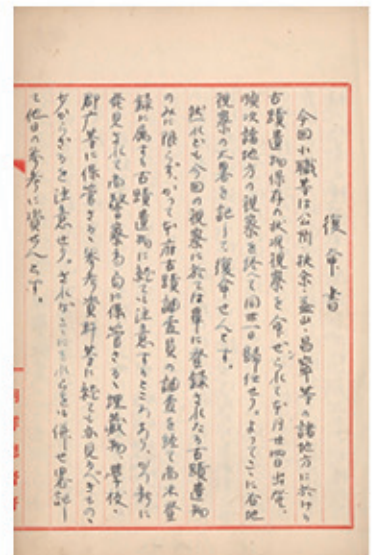 復命書
今回小職等は公州・扶余・益山・昌寧等の諸地方に於ける
古蹟遺物保存の状況視察を命ぜられて本月廿四日出発、
順次諸地方の視察を終へて同廿一日帰任せり。よってここに各地
視察の大要を記して復命せんとす。
然れども今回の視察に於ては単に登録されたる古蹟遺物
のみに限らず、かつて本府古蹟調査員の調査を経て尚未登
録に属する古蹟遺物に就ても注意するところあり、又新に
発見されて尚警察署に保管さるる埋蔵物、学校・
郡庁等に保管さるる参考資料等に就ても亦見るべきもの
少からざるを注意せり。さればここにそれらをも併せ畧記し
て他日の参考に資せんとす。
朝鮮総督府